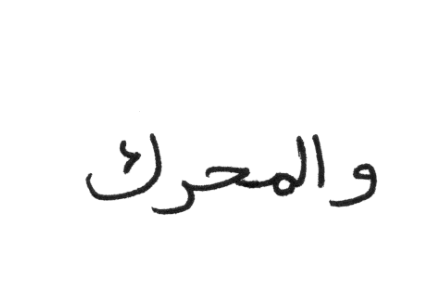 والمحرك